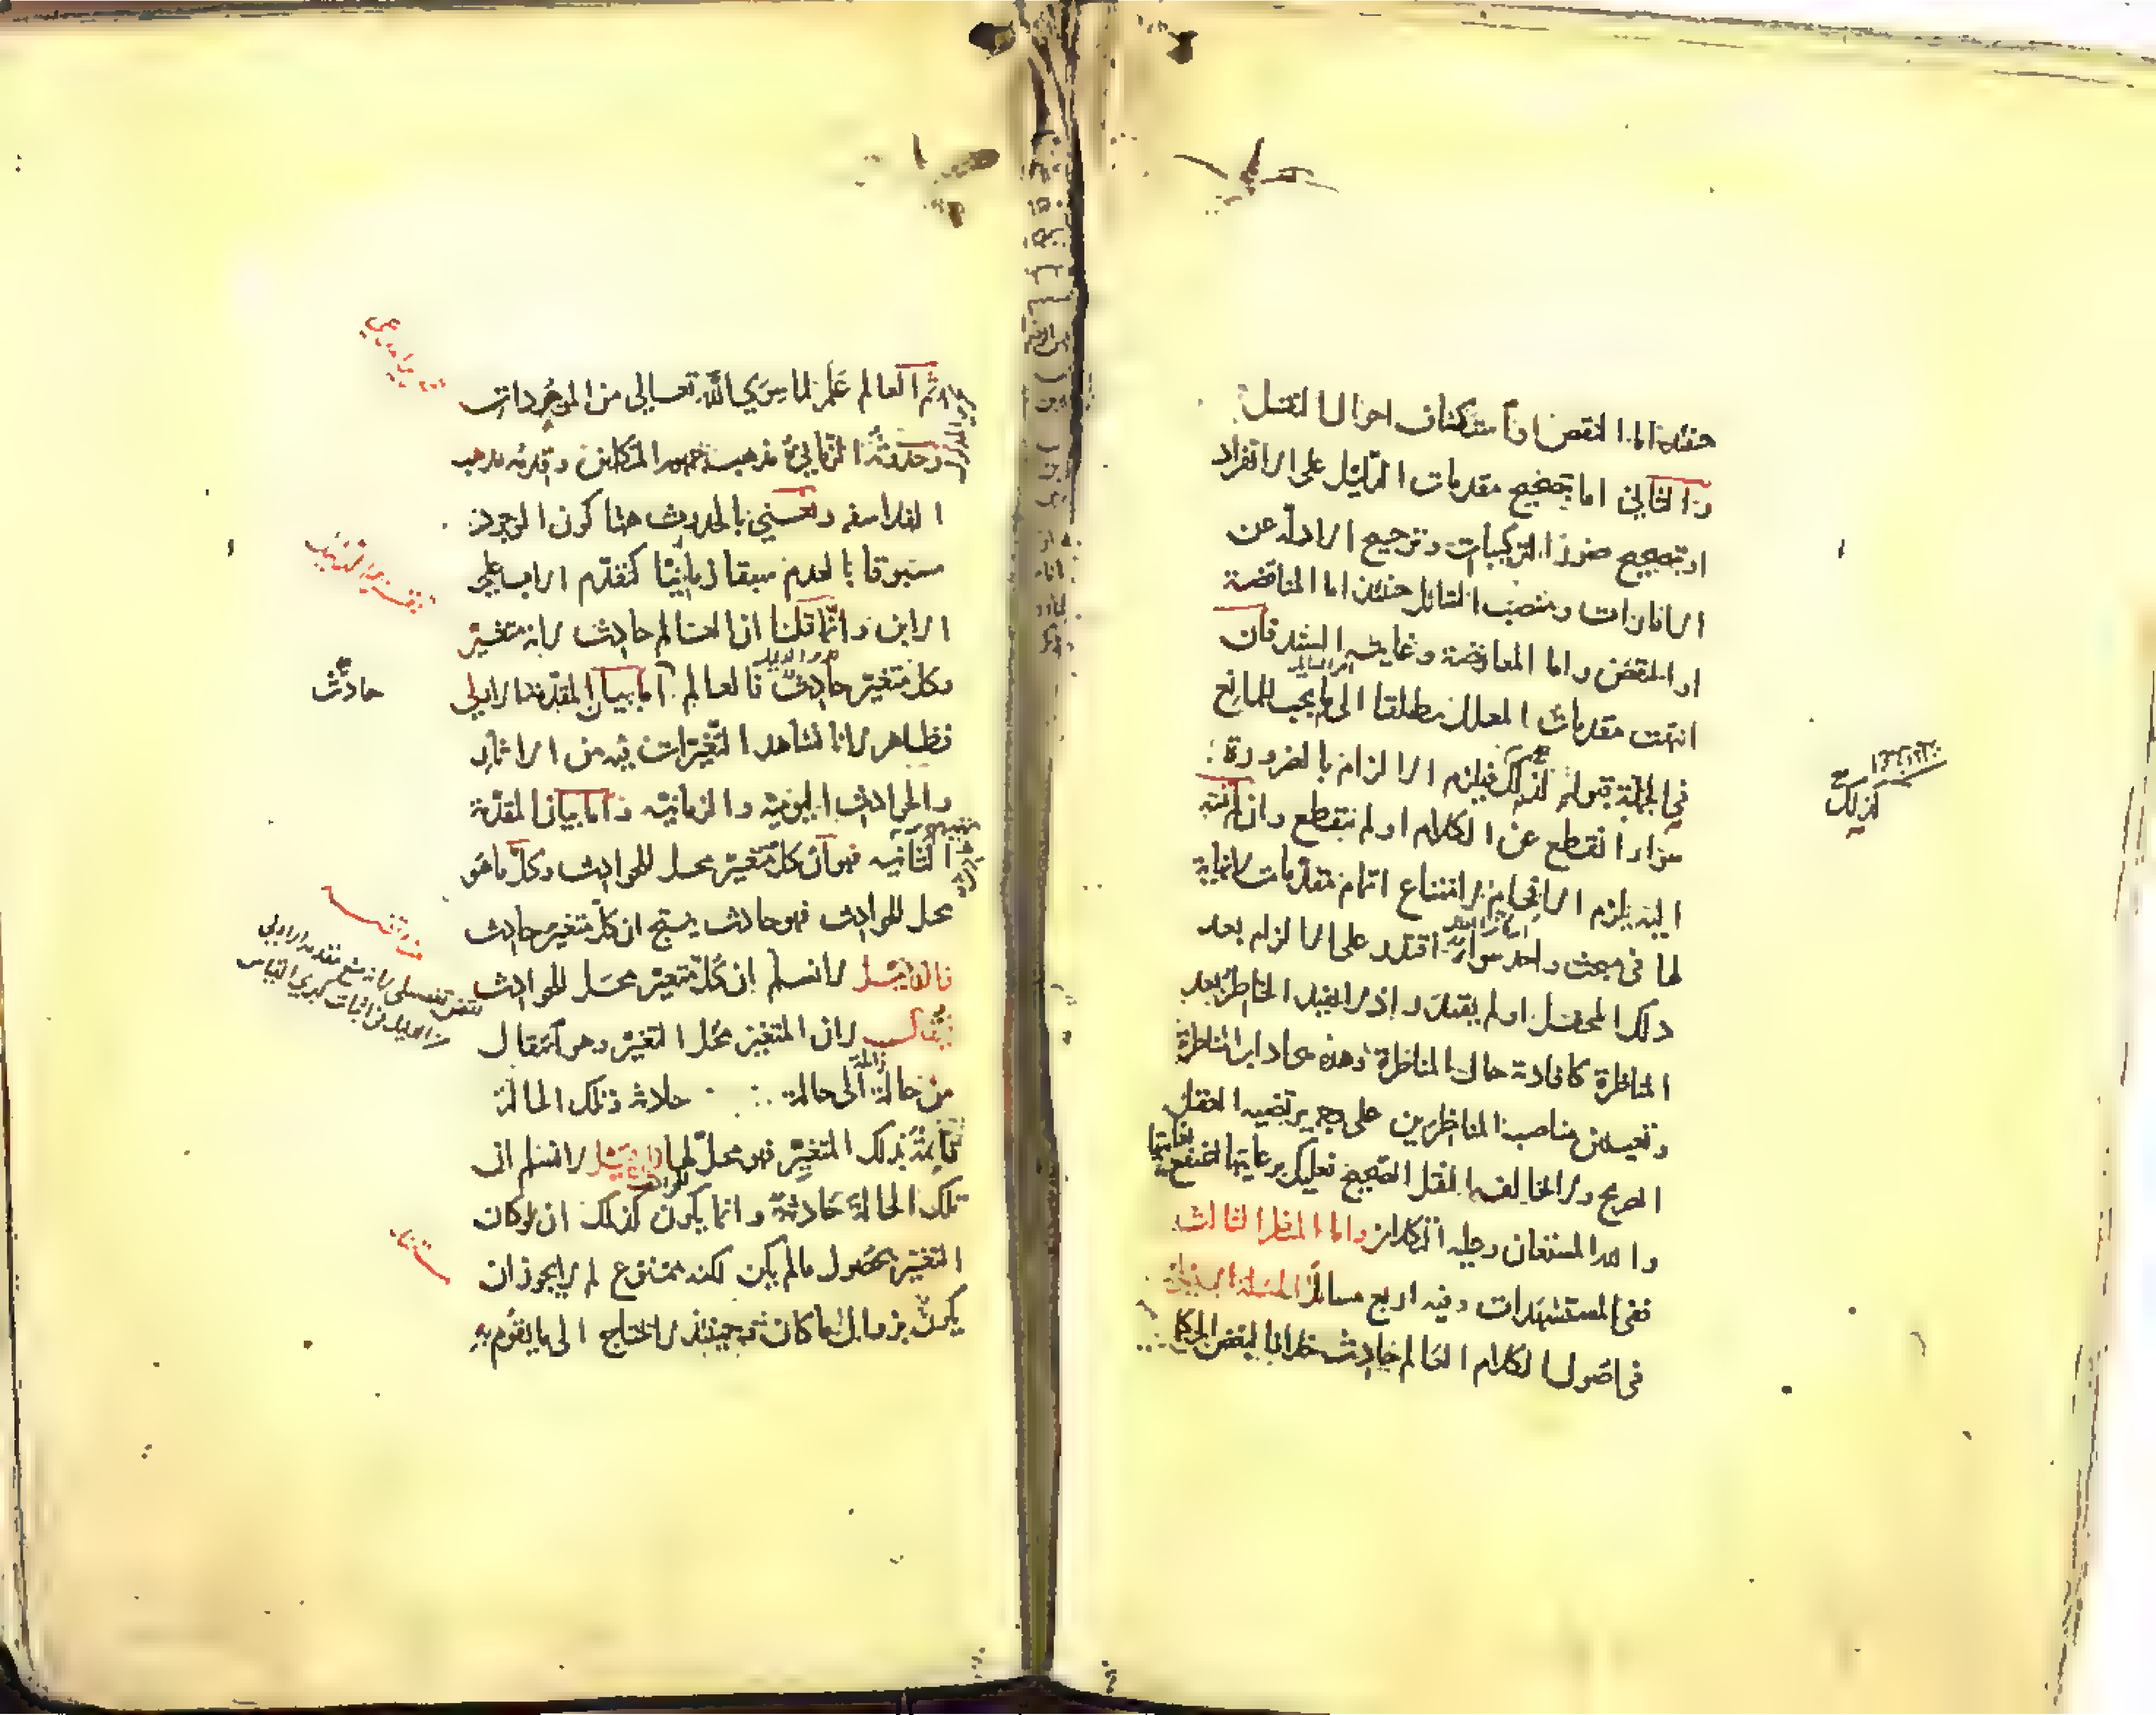 حينئذ اما النقض او استكشاف احوال النقل
والثاني اما تصحيح مقدمات الدليل على الانفراد
او تصحيح صور التركيبات وترجيح الادلة عن
الامارات ومنصب السائل حينئذ اما المناقضة
او النقض واما المعارضة وغايته فان
انتهت مقدمات المعلل مطلقا الى ما يجب للمانع
في الجملة قبوله كذلك فيلزم الالزام بالضرورة
سواء انقطع عن الكلام او لم ينقطع وان لم تنته
اليه يلزم الافحام لامتناع اتمام مقدمات لا نهاية
لها في مبحث واحد سواء اقتدر على الالزام بعد
ذلك المحفل او لم يقتدر اذ لا يفيد الخاطر بعد
المناظرة كافادته حال المناظرة وهذه هي اداب المناظرة
وتعيين مناصب المناظرين على وجه يرتضيه العقل
الصريح ولا يخالفه النقل الصحيح فعليك برعايتها
والله المستعان وعليه التكلان واما النظر الثالث
ففي المستشهدات وفيه اربع مسائل المسئلة
في اصول الكلام العالم حادث خلافا لبعض الحكما
كذلك
ثم العالم علم لما سوى الله تعالى من الموجودات
وحدوثه الزماني مذهب جمهور المتكلمين وقدمه مذهب
الفلاسفه ونعني بالحدوث هنا كون الموجود
مسبوقا بالعدم سبقا زمانيا كتقدم الاب على
الابن وانما قلنا ان العالم حادث لانه متغير
وكل متغير حادث فالعالم اما بيان المقدمة الاولى
فظاهر لانا نشاهد التغيرات فيه من الاثار
والحوادث اليومية والزمانية واما بيان المقدمة
الثانية فهو ان كل متغير محل للحوادث وكل ما هو
محل للحوادث فهو حادث ينتج ان كل متغير حادث
فان قيل لا نسلم ان كل متغير محل للحوادث
لان المتغير محل التغير وهو انتقال
من حالة الى حالة حادثة وتلك الحالة
قائمة بذلك المتغير فهو محل لها فان قيل لا نسلم ان
تلك الحالة حادثة وانما يكون كذلك ان لو كان
التغير بحصول ما لم يكن لكنه ممنوع لم لا يجوز ان
يكون بزوال ما كان وحينئذ لا يحتاج الى ما يقوم به
حادث